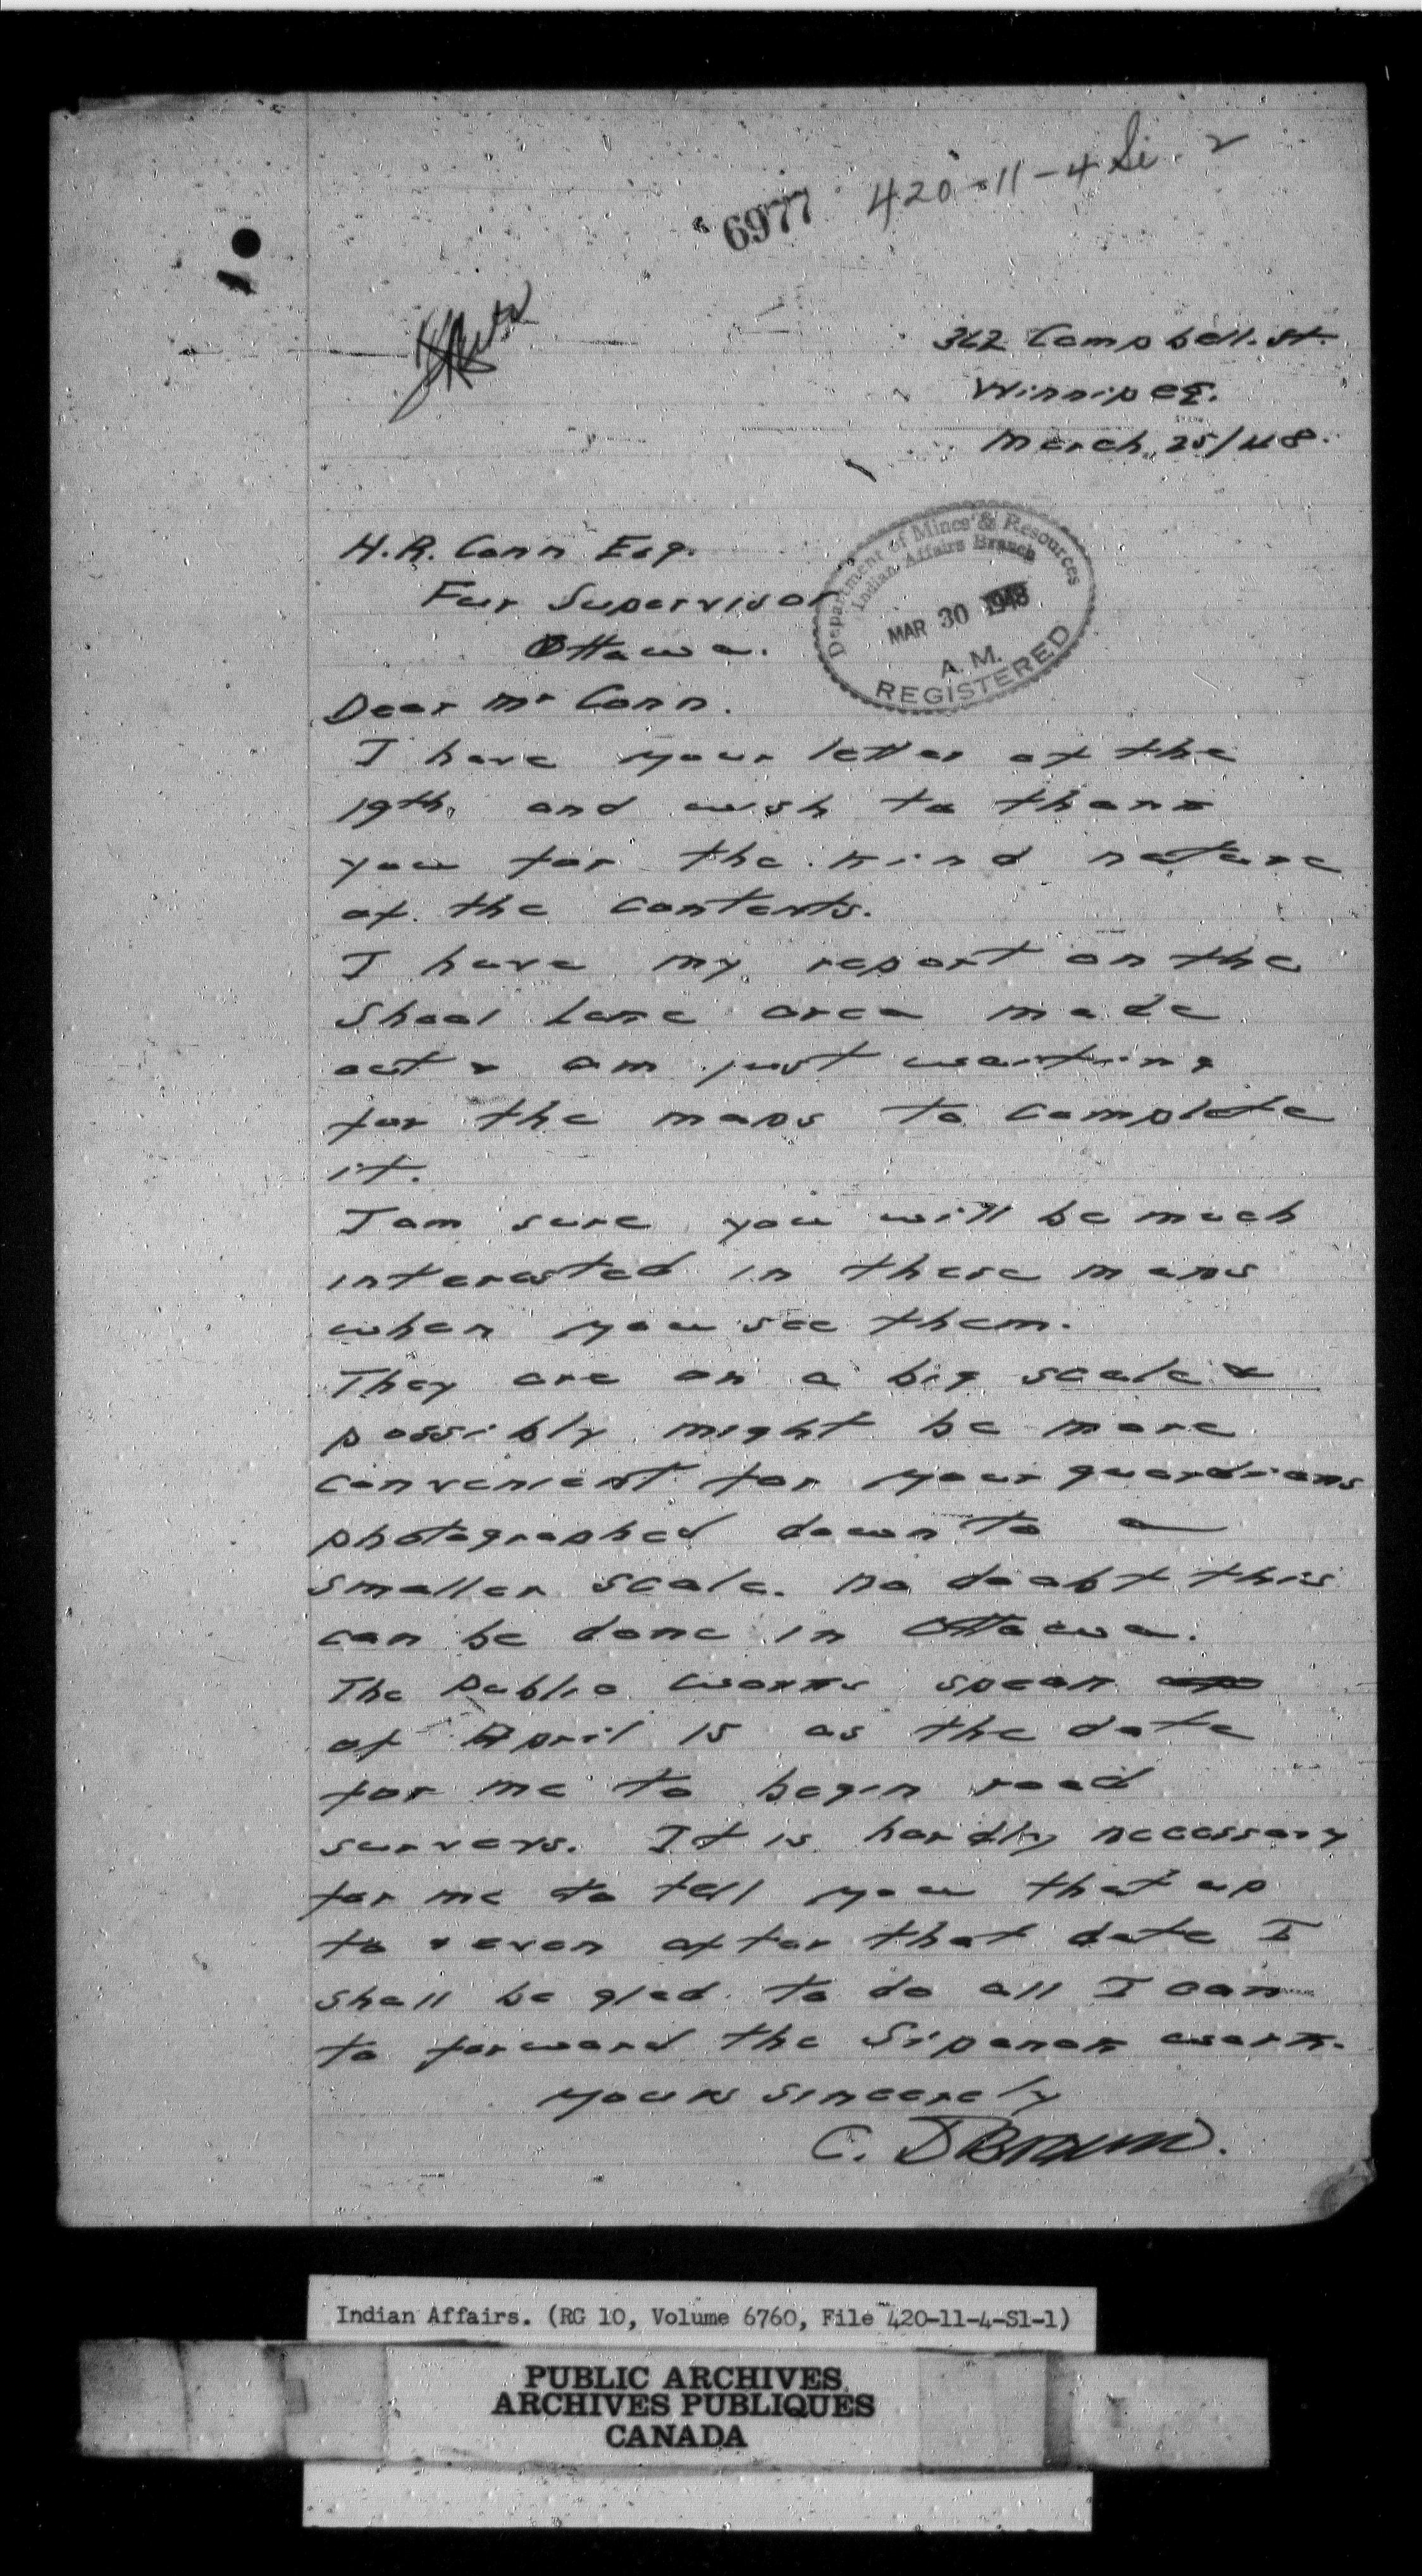 6977 420-11-4 Si. 2
362 Campbell. St.
Winnipeg.
March. 25/48.
H.R. Conn Esq.
Fur Supervisor
Ottawa.
Department of Mines & Resources
Indian Affairs Branch
MAR 30 1948
A. M.
REGISTERED
Dear Mr Conn.
I have your letter of the
19th. and wish to thank
you for the kind nature
of the contents.
I have my report on the
Shoal Lake area made
out & am just waiting
for the maps to complete
it.
I am sure you will be much
interested in these maps
when you see them.
They are on a big scale &
possibly might be more
convenient for your guardians
photographed down to a
smaller scale. No doubt this
can be done in Ottawa.
The Public Works speak
of April 15 as the date
for me to begin road
surveys. It is hardly necessary
for me to tell you that up
to & even after that date I
shall be glad to do all I can
to forward the Sipanok work.
Yours sincerely
C. D Brown.
Indian Affairs. (RG 10, Volume 6760, File 420-11-4-S1-1)
PUBLIC ARCHIVES
ARCHIVES PUBLIQUES
CANADA